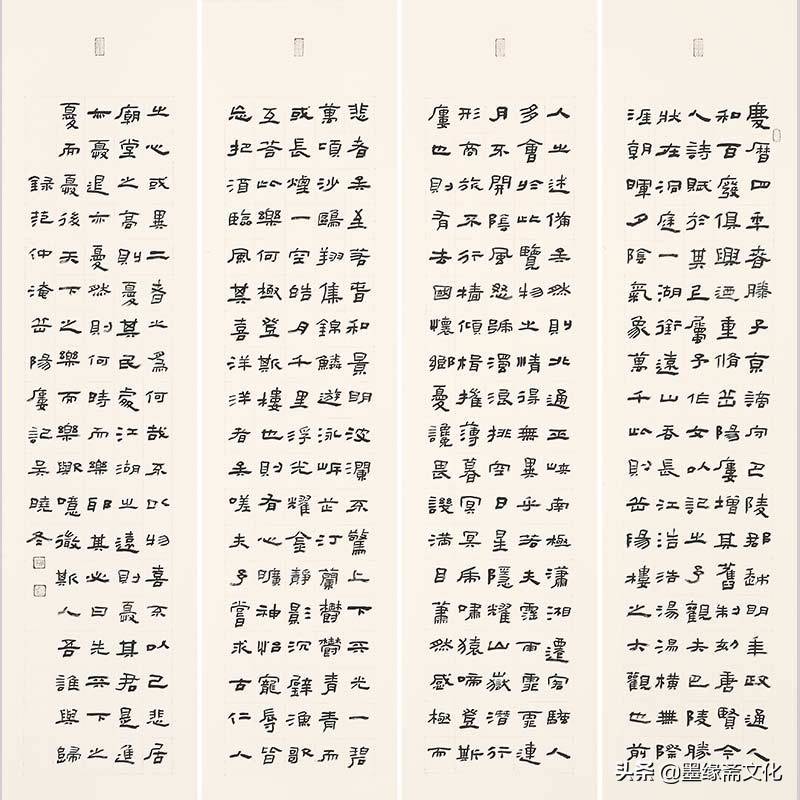 慶曆四年春滕子京謫守巴陵郡越明年政通人
和百廢俱興迺重脩岳陽廔增其舊制刻唐賢今
人詩賦於其上屬予作文以記之予觀夫巴陵勝
狀在洞庭一湖銜遠山吞長江浩浩湯湯橫無際
涯朝暉夕陰氣象萬千此則岳陽樓之大觀也前
人之述備矣然則北通巫峽南極瀟湘遷客騷人
多會於此覽物之情得無異乎若夫霪雨霏霏連
月不開陰風怒號濁浪排空日星隱耀山嶽潛行
形商旅不行檣傾楫摧薄暮冥冥虎嘯猿啼登斯
廔也則有去國懷鄉憂讒畏譏滿目蕭然感極而
悲者矣至若春和景明波瀾不驚上下天光一碧
萬頃沙鷗翔集錦鱗遊泳岸芷汀蘭鬱鬱青青而
或長煙一空皓月千里浮光耀金靜影沉璧漁歌
互答此樂何極登斯樓也則有心曠神怡寵辱皆
忘把酒臨風其喜洋洋者矣嗟夫予嘗求古仁人
之心或異二者之為何哉不以物喜不以己悲居
廟堂之高則憂其民處江湖之遠則憂其君是進
亦憂退亦憂然則何時而樂耶其必曰先天下之
憂而憂後天下之樂而樂歟噫微斯人吾誰與歸
錄范仲淹岳陽廔記吳曉冬
头条 @墨缘斋文化